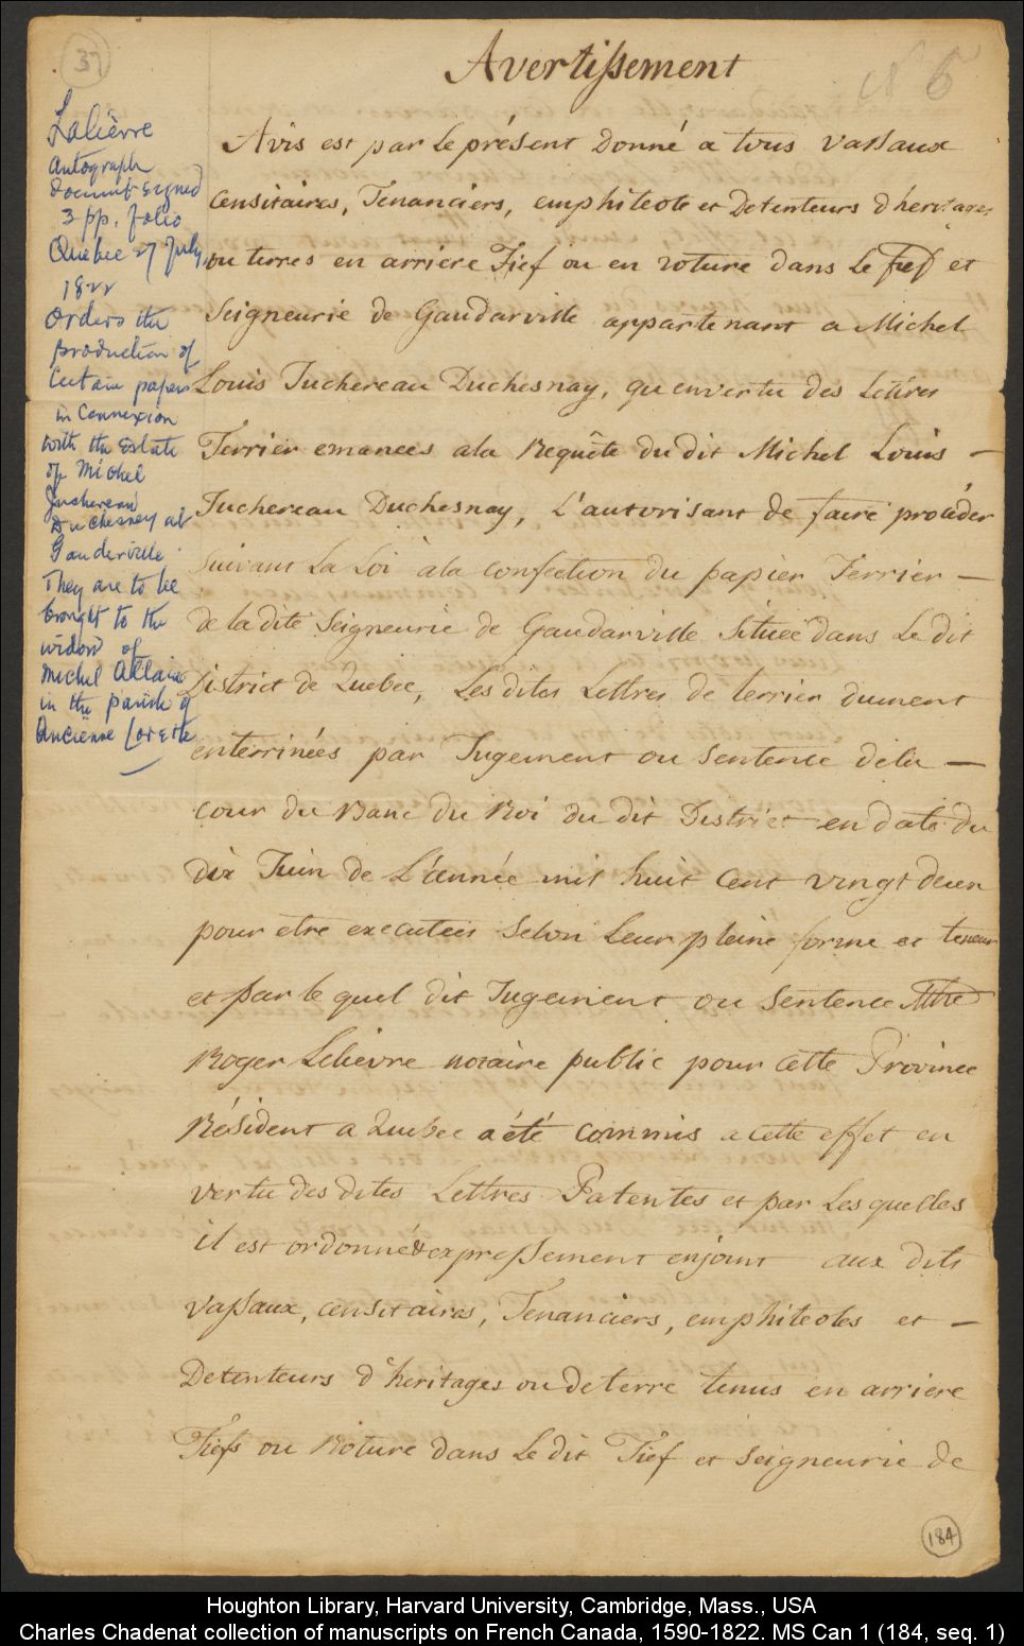 37
Avertissement
N 6
Lelièvre
Autograph
Document signed
3 pp. folio
Quebec 27 July
1822
Orders the
production of
Certain papers
in Connexion
with the Estate
of Michel
Juchereau
Duchesnay at
Gauderville.
They are to be
brought to the
widow of
Michel Allain
in the parish of
Ancienne Lorette
Avis est par Le présent Donné a tous Vassaux
Censitaires, Tenanciers, emphiteote et Detenteurs d'heritages
ou terres en arriere Fief ou en roture dans Le Fief et
Seigneurie de Gaudarville appartenant a Michel
Louis Juchereau Duchesnay, qu'en vertu des Lettres
Terrier emanees a la Requête du dit Michel Louis —
Juchereau Duchesnay, L'autorisant de faire procéder
Suivant La Loi à la confection du papier Terrier —
de la dite Seigneurie de Gaudarville Située dans Le dit
District de Quebec, Les dites Lettres de terrier dument
enterrinées par Jugement ou Sentence de la —
Cour du Banc du Roi du dit District en date du
dix Juin de L'année mil huit Cent vingt deux
pour etre executées Selon Leur pleine forme et teneur
et par le quel dit Jugement ou Sentence Mtre
Roger Lelièvre notaire public pour cette Province
Résident a Quebec a été commis a cette effet en
vertu des dites Lettres Patentes et par Lesquelles
il est ordonné & expressement enjoint aux dits
Vassaux, censitaires, Tenanciers, emphiteotes et —
Detenteurs d'heritages ou de terre tenus en arriere
Fiefs ou Roture dans Le dit Fief et Seigneurie de
184
Houghton Library, Harvard University, Cambridge, Mass., USA
Charles Chadenat collection of manuscripts on French Canada, 1590-1822. MS Can 1 (184, seq. 1)